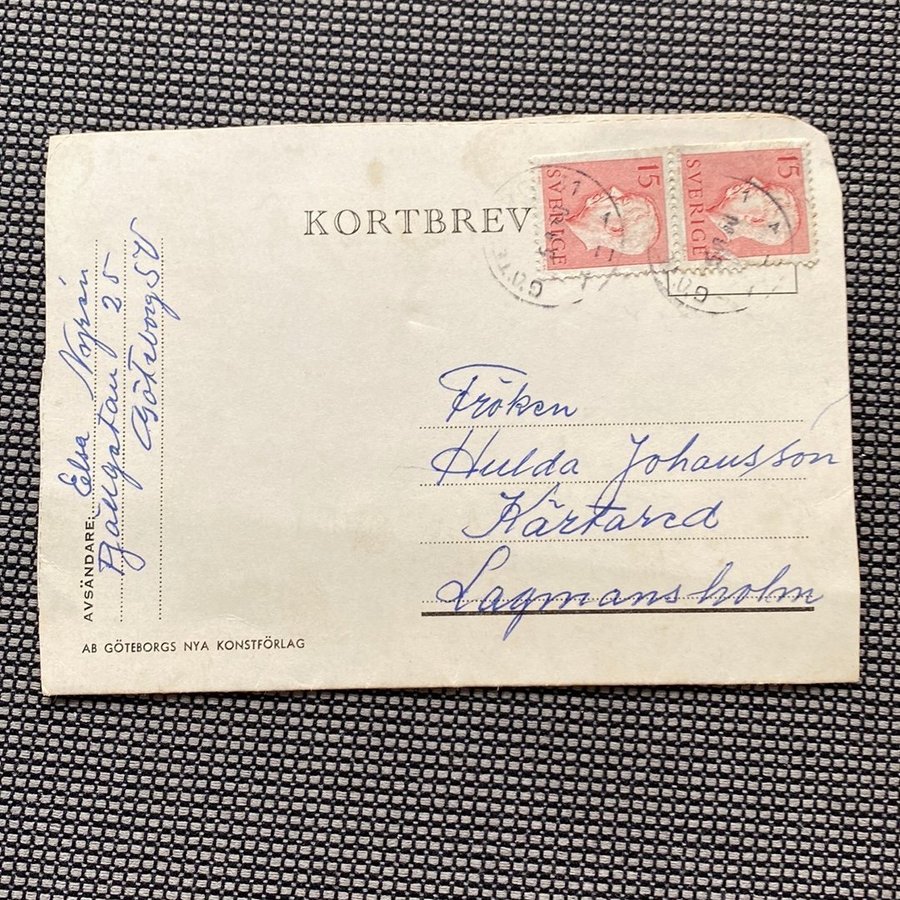 KORTBREV
15
SVERIGE
15
SVERIGE
Fröken
Hulda Johansson
Kärtared
Lagmansholm
AVSÄNDARE: Elsa
25
Göteborg SV
AB GÖTEBORGS NYA KONSTFÖRLAG